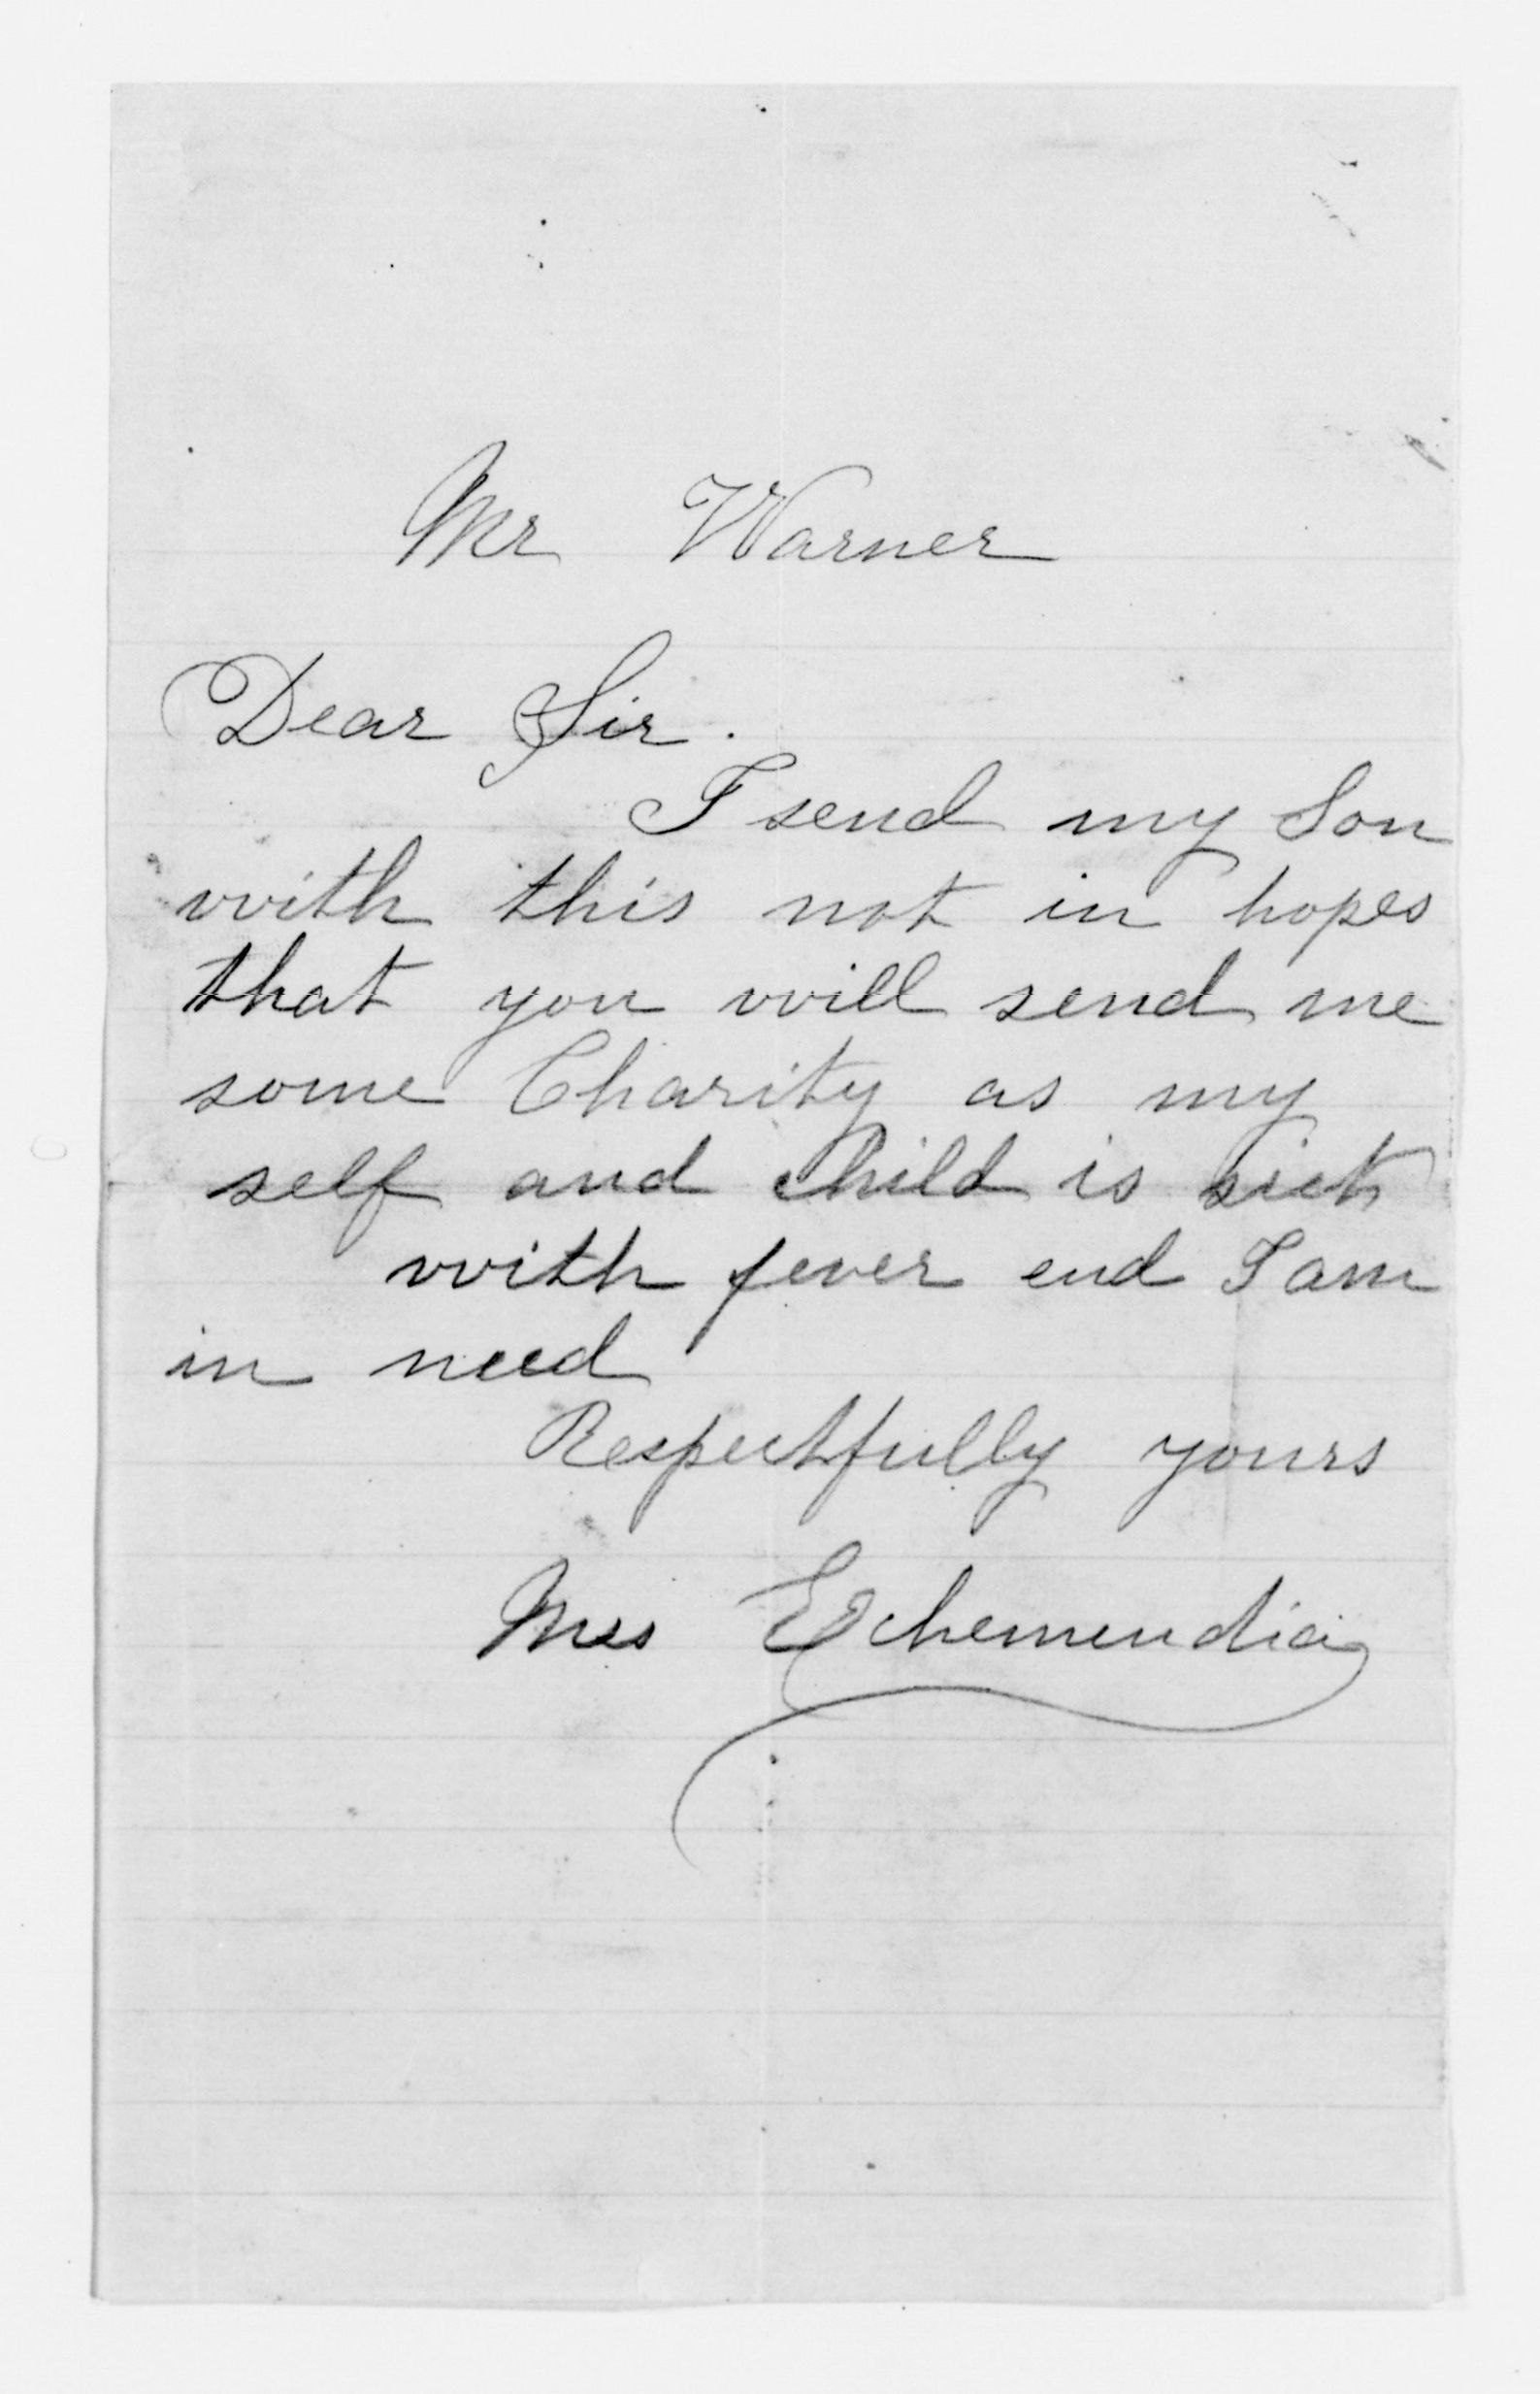 Mr Warner
Dear Sir.
I send my Son
with this not in hopes
that you will send me
some Charity as my
self and child is sick
with fever end I am
in need
Respectfully yours
Mrs Echemendia